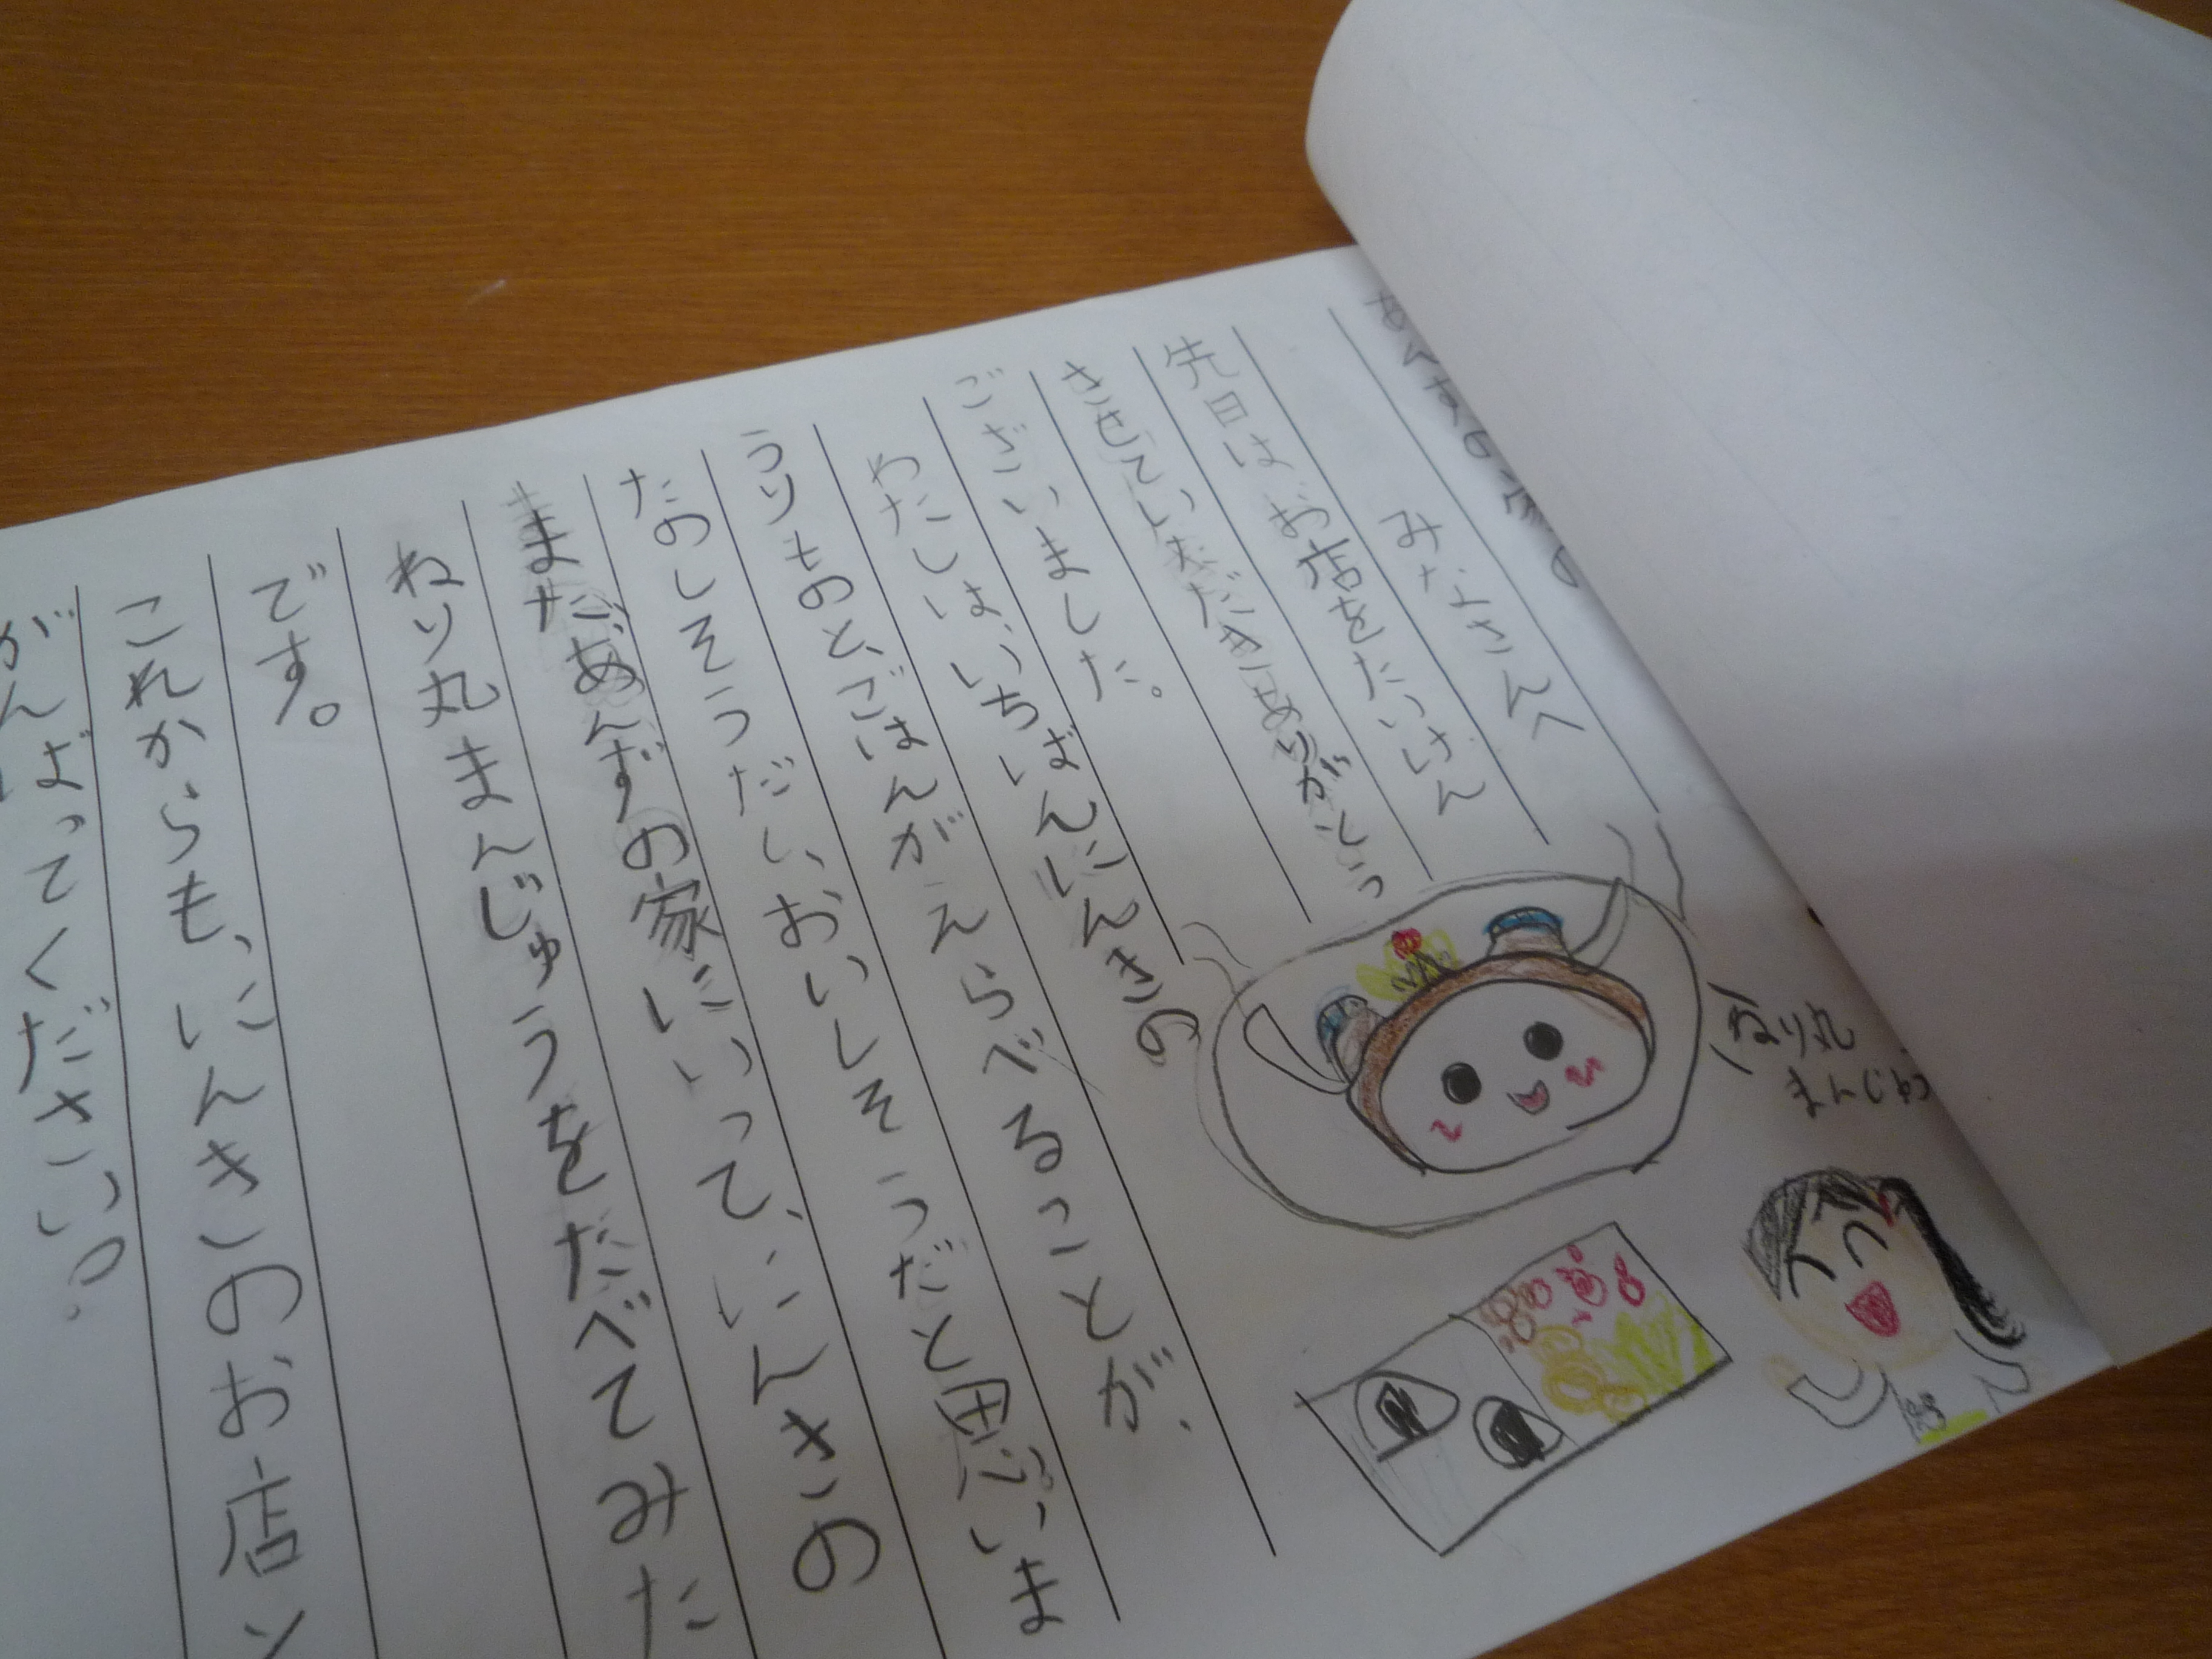 あんずの家の
みなさんへ
先日は、お店をたいけん
させていただきありがとう
ございました。
わたしは、いちばんにんきの
うりものと、ごはんがえらべることが、
たのしそうだし、おいしそうだと思いま
まだ、あんずの家にいって、にんきの
ねり丸まんじゅうをたべてみた
です。
これからも、にんきのお店
がんばってください。
ねり丸
まんじゅう